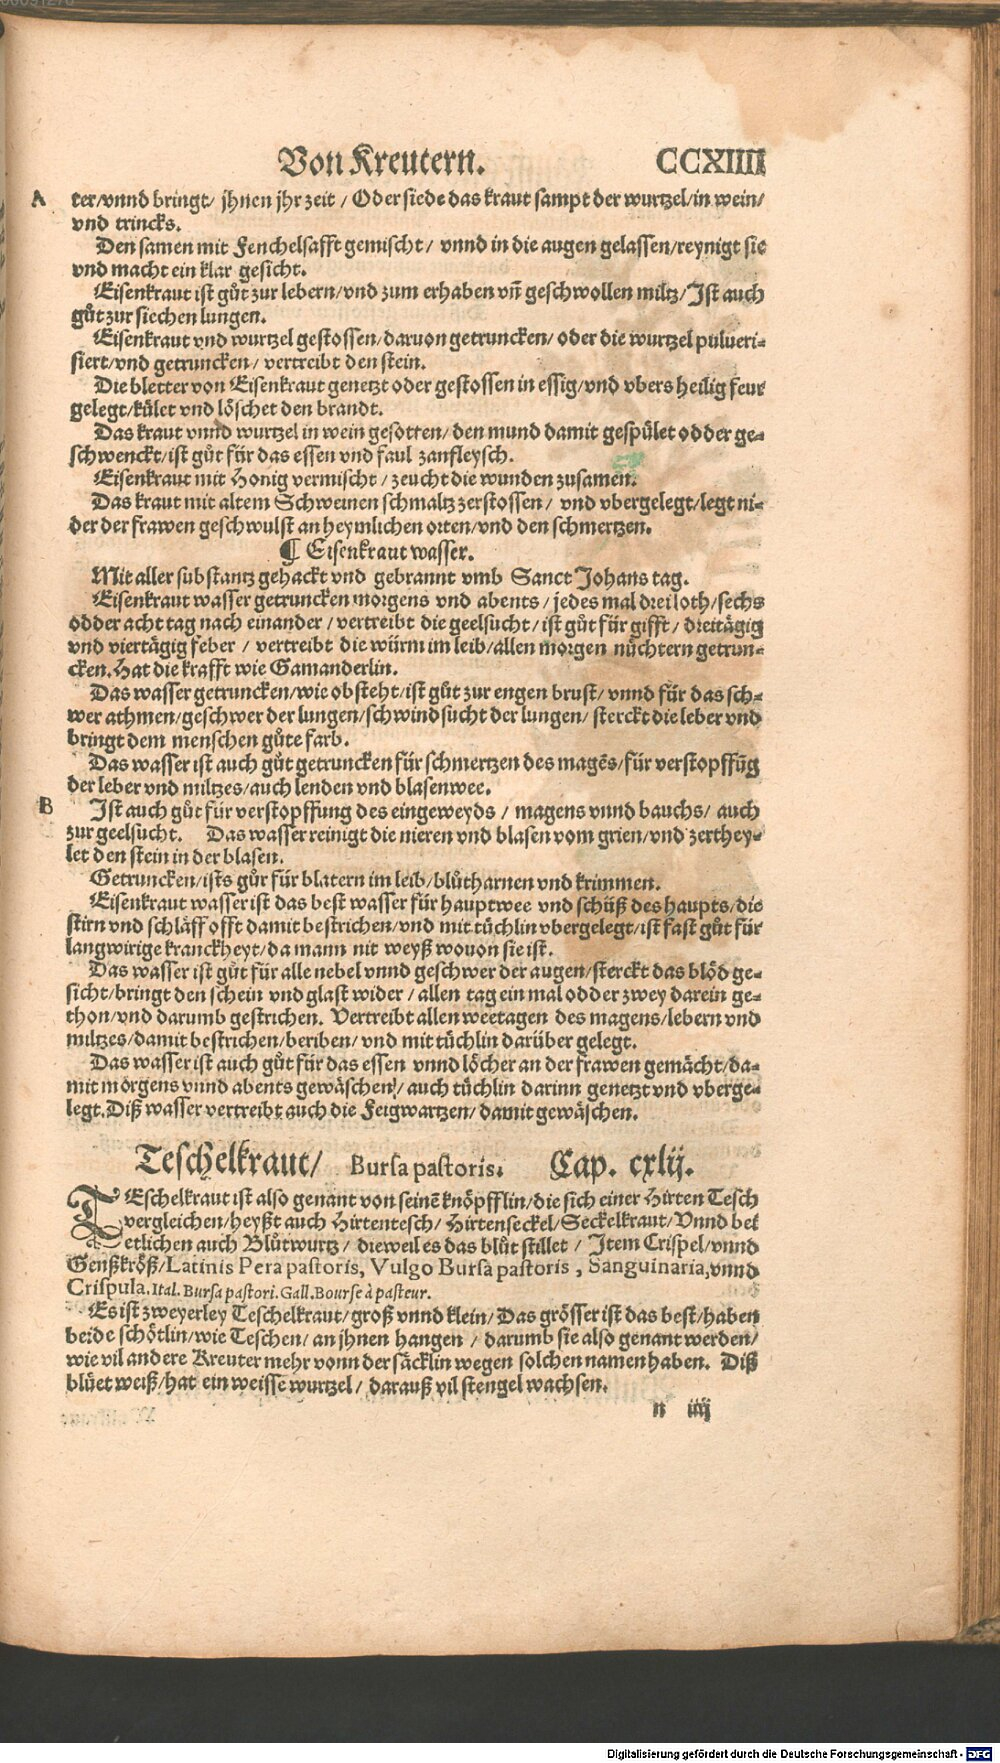 Von Kreutern. CCXIIII
A ter/vnnd bringt/ jhnen jhr zeit / Oder siede das kraut sampt der wurtzel/in wein/
vnd trincks.
Den samen mit Fenchelsafft gemischt/ vnnd in die augen gelassen/reynigt sie
vnd macht ein klar gesicht.
Eisenkraut ist gůt zur lebern/vnd zum erhaben vñ geschwollen miltz/Ist auch
gůt zur siechen lungen.
Eisenkraut vnd wurtzel gestossen/daruon getruncken/ oder die wurtzel pulueri-
siert/vnd getruncken/ vertreibt den stein.
Die bletter von Eisenkraut genetzt oder gestossen in essig/vnd vbers heilig feur
gelegt/kület vnd löschet den brandt.
Das kraut vnnd wurtzel in wein gesotten/den mund damit gespület odder ge-
schwenckt/ist gůt für das essen vnd faul zanfleysch.
Eisenkraut mit Honig vermischt / zeucht die wunden zusamen.
Das kraut mit altem Schweinen schmaltz zerstossen/ vnd vbergelegt/legt ni-
der der frawen geschwulst an heymlichen orten/vnd den schmertzen.
¶ Eisenkraut wasser.
Mit aller substantz gehackt vnd gebrannt vmb Sanct Johans tag.
Eisenkraut wasser getruncken morgens vnd abents / jedes mal drei loth/sechs
odder acht tag nach einander / vertreibt die geelsucht/ist gůt für gifft/ dreitägig
vnd viertägig feber / vertreibt die würm im leib/allen morgen nüchtern getrun-
cken. Hat die krafft wie Gamanderlin.
Das wasser getruncken/wie obsteht/ist gůt zur engen brust/ vnnd für das sch-
wer athmen/geschwer der lungen/schwindsucht der lungen/ sterckt die leber vnd
bringt dem menschen gůte farb.
Das wasser ist auch gůt getruncken für schmertzen des magẽs/für verstopffũg
der leber vnd miltzes/auch lenden vnd blasenwee.
B Ist auch gůt für verstopffung des eingeweyds / magens vnnd bauchs/ auch
zur geelsucht. Das wasser reinigt die nieren vnd blasen vom grien/vnd zerthey-
let den stein in der blasen.
Getruncken/ists gůt für blatern im leib/blůtharnen vnd krimmen.
Eisenkraut wasser ist das best wasser für hauptwee vnd schüß des haupts/die
stirn vnd schläff offt damit bestrichen/vnd mit tüchlin vbergelegt/ist fast gůt für
langwirige kranckheyt/da mann nit weyß wouon sie ist.
Das wasser ist gůt für alle nebel vnnd geschwer der augen/sterckt das blöd ge-
sicht/bringt den schein vnd glast wider / allen tag ein mal odder zwey darein ge-
thon/vnd darumb gestrichen. Vertreibt allen weetagen des magens/lebern vnd
miltzes/damit bestrichen/beriben/ vnd mit tüchlin darüber gelegt.
Das wasser ist auch gůt für das essen vnnd löcher an der frawen gemächt/da-
mit morgens vnnd abents gewäschen/ auch tüchlin darinn genetzt vnd vberge-
legt. Diß wasser vertreibt auch die Feigwartzen/damit gewäschen.
Teschelkraut/ Bursa pastoris. Cap. cxlij.
TEschelkraut ist also genant von seinẽ knöpfflin/die sich einer Hirten Tesch
vergleichen/heyßt auch Hirtentesch/ Hirtenseckel/Seckelkraut/Vnnd bei
etlichen auch Blůtwurtz / dieweil es das blůt stillet / Item Crispel/vnnd
Genßkröß/Latinis Pera pastoris, Vulgo Bursa pastoris, Sanguinaria, vnnd
Crispula. Ital. Bursa pastori. Gall. Bourse à pasteur.
Es ist zweyerley Teschelkraut/groß vnnd klein/Das grösser ist das best/haben
beide schötlin/wie Teschen/ an jhnen hangen / darumb sie also genant werden/
wie vil andere Kreuter mehr vonn der säcklin wegen solchen namen haben. Diß
blüet weiß/hat ein weisse wurtzel / darauß vil stengel wachsen.
n iiij
Digitalisierung gefördert durch die Deutsche Forschungsgemeinschaft - DFG